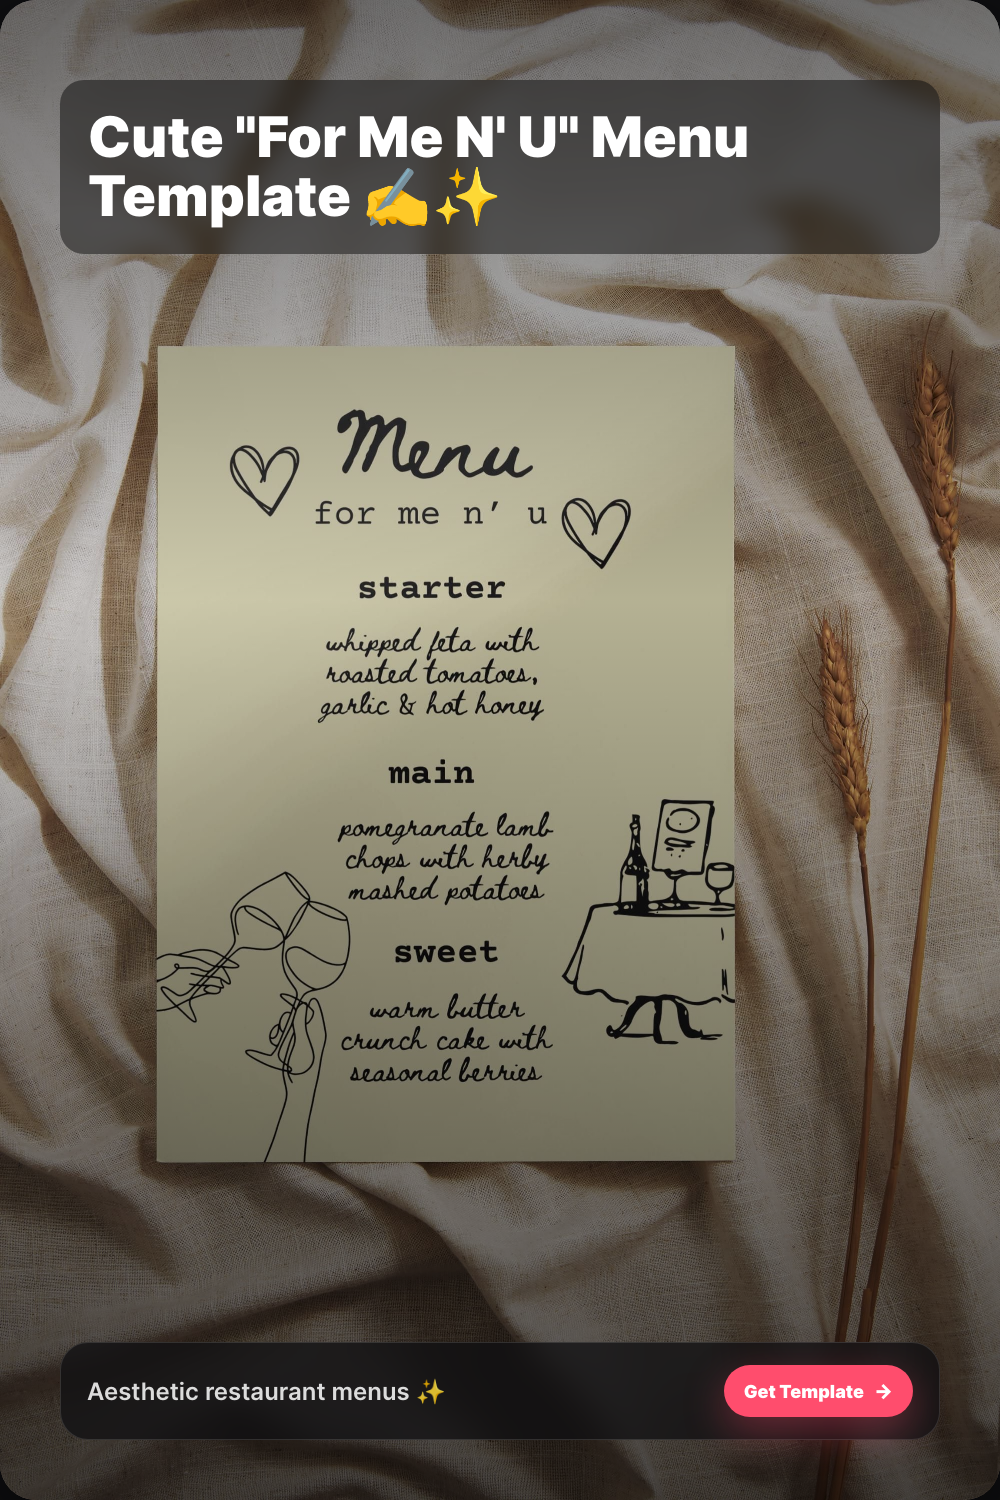 Cute "For Me N' U" Menu
Template ✍️✨
Menu
for me n' u
starter
whipped feta with
roasted tomatoes,
garlic & hot honey
main
pomegranate lamb
chops with herby
mashed potatoes
sweet
warm butter
crunch cake with
seasonal berries
Aesthetic restaurant menus ✨
Get Template →